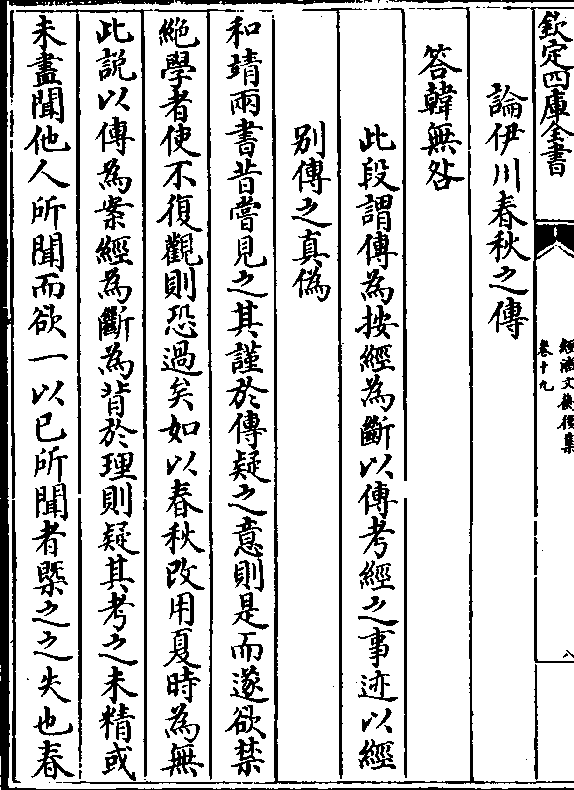 欽定四庫全書
經濟文衡後集
卷十九
八
論伊川春秋之傳
答韓無咎
此段謂傳為按經為斷以傳考經之事迹以經
別傳之真偽
和靖兩書昔嘗見之其謹於傳疑之意則是而遂欲禁
絶學者使不復觀則恐過矣如以春秋改用夏時為無
此説以傳為案經為斷為背於理則疑其考之未精或
未盡聞他人所聞而欲一以已所聞者槩之之失也春